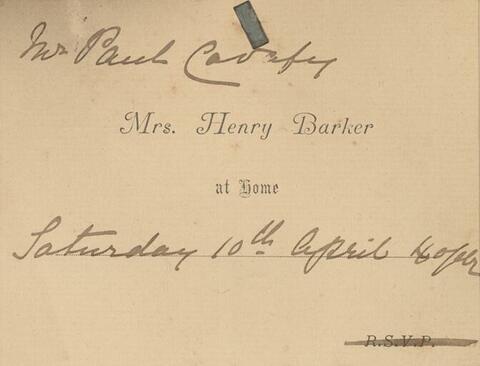 Mr Paul Cavafy
Mrs. Henry Barker
at Home
Saturday 10th April
R.S.V.P.